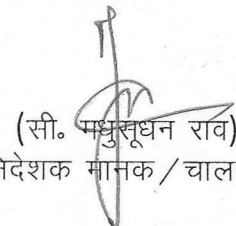 (सी. मधुसूधन राव)
निदेशक मानक / चाल